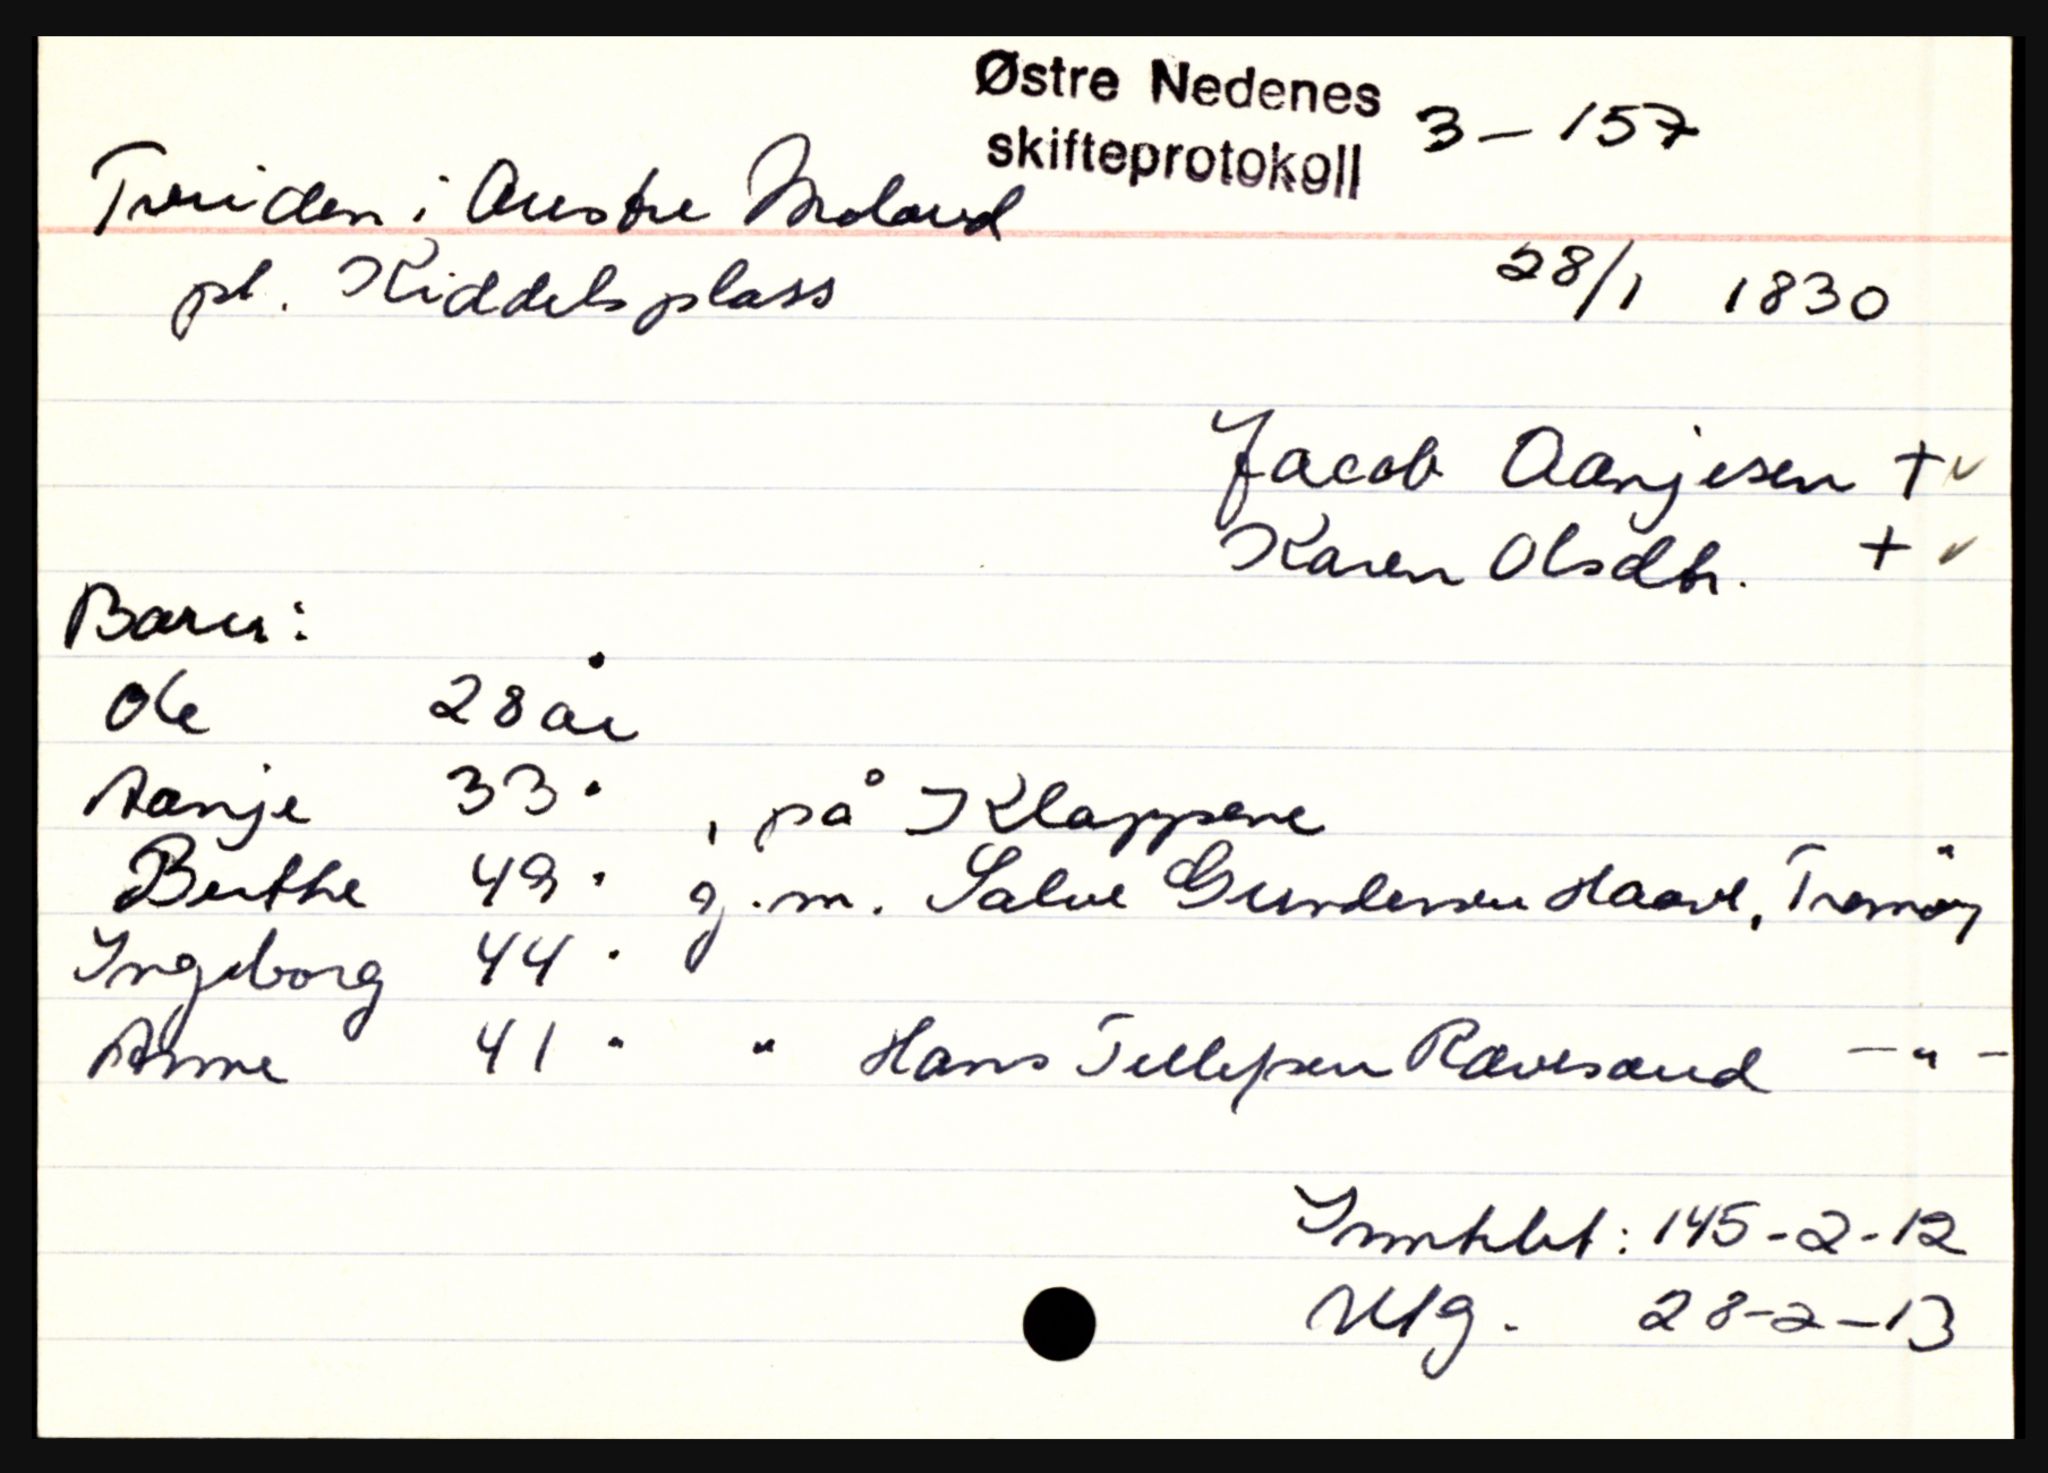 Østre Nedenes
skifteprotokoll 3 – 157
Tveiden i Austre Moland
pl. Kiddelsplass
28/1 1830
Jacob Aanjesen + ✓
Karen Olsdtr. + ✓
Barn:
Ole 28 år
Aanje 33 " , på Klappene
Berthe 49 " g.m. Salve Gundersen Haave, Tromøy
Ingeborg 44 "
Anne 41 " " Hans Tellefsen Rævesand – " –
Inntekt: 145-2-12
Utg. 28-2-13